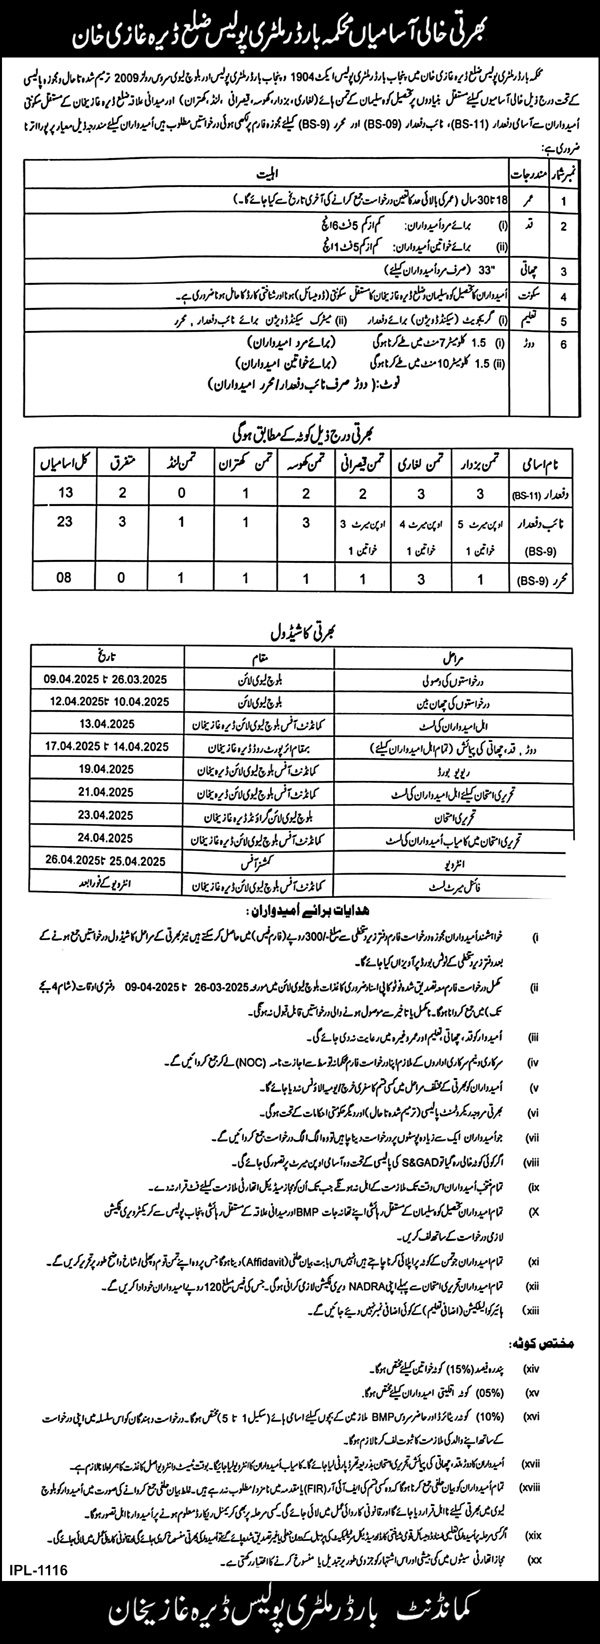 بھرتی خالی آسامیاں محکمہ بارڈر ملٹری پولیس ضلع ڈیرہ غازی خان
محکمہ بارڈر ملٹری پولیس ضلع ڈیرہ غازی خان میں پنجاب بارڈر ملٹری پولیس ایکٹ 1904 و پنجاب بارڈر ملٹری پولیس اور بلوچ لیوی سروس رولز 2009 ترمیم شدہ تا حال و مجوزہ پالیسی
کے تحت درج ذیل خالی آسامیوں کیلئے مستقل بنیادوں پر تحصیل کوہ سلیمان کے تمن ہائے (لغاری، بزدار، کھوسہ، قیصرانی، لنڈ، کھتران) اور میدانی علاقہ ضلع ڈیرہ غازیخان کے مستقل سکونتی
اُمیدواران سے آسامی دفعدار (BS-11)، نائب دفعدار (BS-09) اور محرر (BS-9) کیلئے مجوزہ فارم پر لکھی ہوئی درخواستیں مطلوب ہیں اُمیدواران کیلئے مندرجہ ذیل معیار پر پورا اترنا
ضروری ہے:
نمبر شمار مندرجات اہلیت
1 عمر 18 تا 30 سال (عمر کی بالائی حد کا تعین درخواست جمع کرانے کی آخری تاریخ سے کیا جائے گا۔)
2 قد (i) برائے مرد اُمیدواران: کم از کم 5 فٹ 6 انچ
(ii) برائے خواتین اُمیدواران: کم از کم 5 فٹ 1 انچ
3 چھاتی "33 (صرف مرد اُمیدواران کیلئے)
4 سکونت اُمیدواران کا تحصیل کوہ سلیمان و ضلع ڈیرہ غازیخان کا مستقل سکونتی (ڈومیسائل) ہونا اور شناختی کارڈ کا حامل ہونا ضروری ہے۔
5 تعلیم (i) گریجویٹ (سیکنڈ ڈویژن) برائے دفعدار (ii) میٹرک سیکنڈ ڈویژن برائے نائب دفعدار، محرر
6 دوڑ (i) 1.5 کلومیٹر 7 منٹ میں طے کرنا ہوگی (برائے مرد امیدواران)
(ii) 1.5 کلومیٹر 10 منٹ میں طے کرنا ہوگی (برائے خواتین امیدواران)
نوٹ: (دوڑ صرف نائب دفعدار/محرر امیدواران)
بھرتی درج ذیل کوٹہ کے مطابق ہوگی
نام اسامی تمن بزدار تمن لغاری تمن قیصرانی تمن کھوسہ تمن کھتران تمن لنڈ متفرق کل اسامیاں
دفعدار (BS-11) 3 3 2 2 1 0 2 13
نائب دفعدار (BS-9) اوپن میرٹ 5 خواتین 1 اوپن میرٹ 4 خواتین 1 اوپن میرٹ 3 خواتین 1 3 1 1 3 23
محرر (BS-9) 1 3 1 1 1 1 0 08
بھرتی کا شیڈول
مراحل مقام تاریخ
درخواستوں کی وصولی بلوچ لیوی لائن 26.03.2025 تا 09.04.2025
درخواستوں کی چھان بین بلوچ لیوی لائن 10.04.2025 تا 12.04.2025
اہل امیدواران کی لسٹ کمانڈنٹ آفس بلوچ لیوی لائن ڈیرہ غازیخان 13.04.2025
دوڑ، قد، چھاتی کی پیمائش (تمام اہل امیدواران کیلئے) بمقام ائرپورٹ روڈ ڈیرہ غازیخان 14.04.2025 تا 17.04.2025
ریویو بورڈ کمانڈنٹ آفس بلوچ لیوی لائن ڈیرہ غازیخان 19.04.2025
تحریری امتحان کیلئے اہل امیدواران کی لسٹ کمانڈنٹ آفس بلوچ لیوی لائن ڈیرہ غازیخان 21.04.2025
تحریری امتحان بلوچ لیوی لائن گراؤنڈ ڈیرہ غازیخان 23.04.2025
تحریری امتحان میں کامیاب اُمیدواران کی لسٹ کمانڈنٹ آفس بلوچ لیوی لائن ڈیرہ غازیخان 24.04.2025
انٹرویو کمشنر آفس 25.04.2025 تا 26.04.2025
فائنل میرٹ لسٹ کمانڈنٹ آفس بلوچ لیوی لائن ڈیرہ غازیخان انٹرویو کے فوراً بعد
ہدایات برائے اُمیدواران:
(i خواہشمند اُمیدواران مجوزہ درخواست فارم دفتر زیر دستخطی سے مبلغ -/300 روپے (فارم فیس) میں حاصل کر سکتے ہیں نیز بھرتی کے مراحل کا شیڈول درخواستیں جمع ہونے کے
بعد دفتر زیر دستخطی کے نوٹس بورڈ پر آویزاں کیا جائے گا۔
(ii مکمل درخواست فارم معہ تصدیق شدہ فوٹو کاپی اسناد ضروری کاغذات بلوچ لیوی لائن میں مورخہ 26-03-2025 تا 09-04-2025 دفتری اوقات (شام 4 بجے
تک) میں جمع کروانا ہوگا۔ نامکمل یا تاخیر سے موصول ہونے والی درخواستیں قابل قبول نہ ہونگی۔
(iii اُمیدوار کو قد، چھاتی، تعلیم اور عمر وغیرہ میں رعایت نہ دی جائے گی۔
(iv سرکاری و نیم سرکاری اداروں کے ملازم اپنا درخواست فارم محکمانہ توسط سے اجازت نامہ (NOC) لے کر جمع کروائیں گے۔
(v اُمیدوار کو بھرتی کے مختلف مراحل میں کسی قسم کا سفری خرچ/یومیہ الاؤنس نہ دیا جائے گا۔
(vi بھرتی مروجہ ریکروٹمنٹ پالیسی (ترمیم شدہ تا حال) اور دیگر حکومتی احکامات کے تحت ہوگی۔
(vii جو اُمیدواران ایک سے زیادہ پوسٹوں پر درخواست دینا چاہیں تو وہ الگ الگ درخواست جمع کروائیں گے۔
(viii اگر کوئی کوٹہ خالی رہ گیا تو S&GAD کی پالیسی کے تحت وہ آسامی اوپن میرٹ پر تصور کی جائے گی۔
(ix تمام منتخب اُمیدواران اس وقت تک ملازمت کے اہل نہ ہونگے جب تک اُن کو مجاز میڈیکل اتھارٹی ملازمت کیلئے فٹ قرار نہ دے۔
(X تمام اُمیدواران تحصیل کوہ سلیمان کے مستقل رہائشی اپنے تھانہ جات BMP اور میدانی علاقہ کے مستقل رہائشی پنجاب پولیس سے کریکٹر ویری فکیشن
لازمی درخواست کے ساتھ لف کریں۔
(xi تمام اُمیدواران جو تمن کے کوٹہ پر اپلائی کرنا چاہتے ہیں انہیں اس بابت بیان حلفی (Affidavit) دینا ہوگا جس پر وہ اپنے تمن قوم و پھلی/شاخ واضح طور پر تحریر کریں گے۔
(xii تمام اُمیدواران تحریری امتحان سے پہلے اپنی NADRA ویری فکیشن لازمی کرانی ہوگی۔ جس کی فیس مبلغ 120 روپے امیدواران خود ادا کریں گے۔
(xiii ہائیر کوالیفکیشن (اضافی تعلیم) کے کوئی اضافی نمبر نہیں دیئے جائیں گے۔
مختص کوٹہ:
(xiv پندرہ فیصد (15%) کوٹہ خواتین کیلئے مختص ہوگا۔
(xv (05%) کوٹہ اقلیتی اُمیدواران کیلئے مختص ہوگا۔
(xvi (10%) کوٹہ ریٹائرڈ اور حاضر سروس BMP ملازمین کے بچوں کیلئے اسامی ہائے (سکیل 1 تا 5) مختص ہوگا۔ درخواست دہندگان کو اس سلسلہ میں اپنی درخواست
کے ساتھ اپنے والد کی ملازمت کا ثبوت لف کرنا لازم ہوگا۔
(xvii اُمیدواران کا دوڑ، قد، چھاتی کی پیمائش، تحریری امتحان بذریعہ تھرڈ پارٹی لیا جائے گا۔ کامیاب اُمیدواران کا انٹرویو لیا جائیگا۔ بوقت ٹیسٹ و انٹرویو اصل کاغذات کا ہمراہ لانا لازم ہے۔
(xviii تمام اُمیدواران کو بیان حلفی جمع کرنا ہوگا کہ وہ کسی قسم کی ایف آئی آر (FIR) یا مقدمہ میں نامزد / مطلوب نہ رہے ہیں۔ غلط بیان حلفی جمع کروانے کی صورت میں اُمیدوار کو بلوچ
لیوی میں بھرتی کیلئے نا اہل قرار دیا جائے گا اور قانونی کاروائی عمل میں لائی جائے گی۔ کسی مرحلہ پر بھی کریمنل ریکارڈ معلوم ہونے پر امیدوار نا اہل تصور ہوگا۔
(xix اگر کسی مرحلہ پر اُمیدوار کی تعلیمی اسناد، ڈومیسائل، قومی شناختی کارڈ اور میڈیکل سرٹیفکیٹ کی پڑتال کے دوران جعلی یا غیر تصدیق شدہ پائے گئے تو اُمیدوار کی بھرتی منسوخ کر دی جائے گی اور قانونی کاروائی عمل میں لائی جائے گی۔
(xx مجاز اتھارٹی سیٹوں میں کمی بیشی اور اس اشتہار کو جزوی طور پر تبدیل یا منسوخ کرنے کا اختیار رکھتی ہے۔
IPL-1116
کمانڈنٹ بارڈر ملٹری پولیس ڈیرہ غازیخان